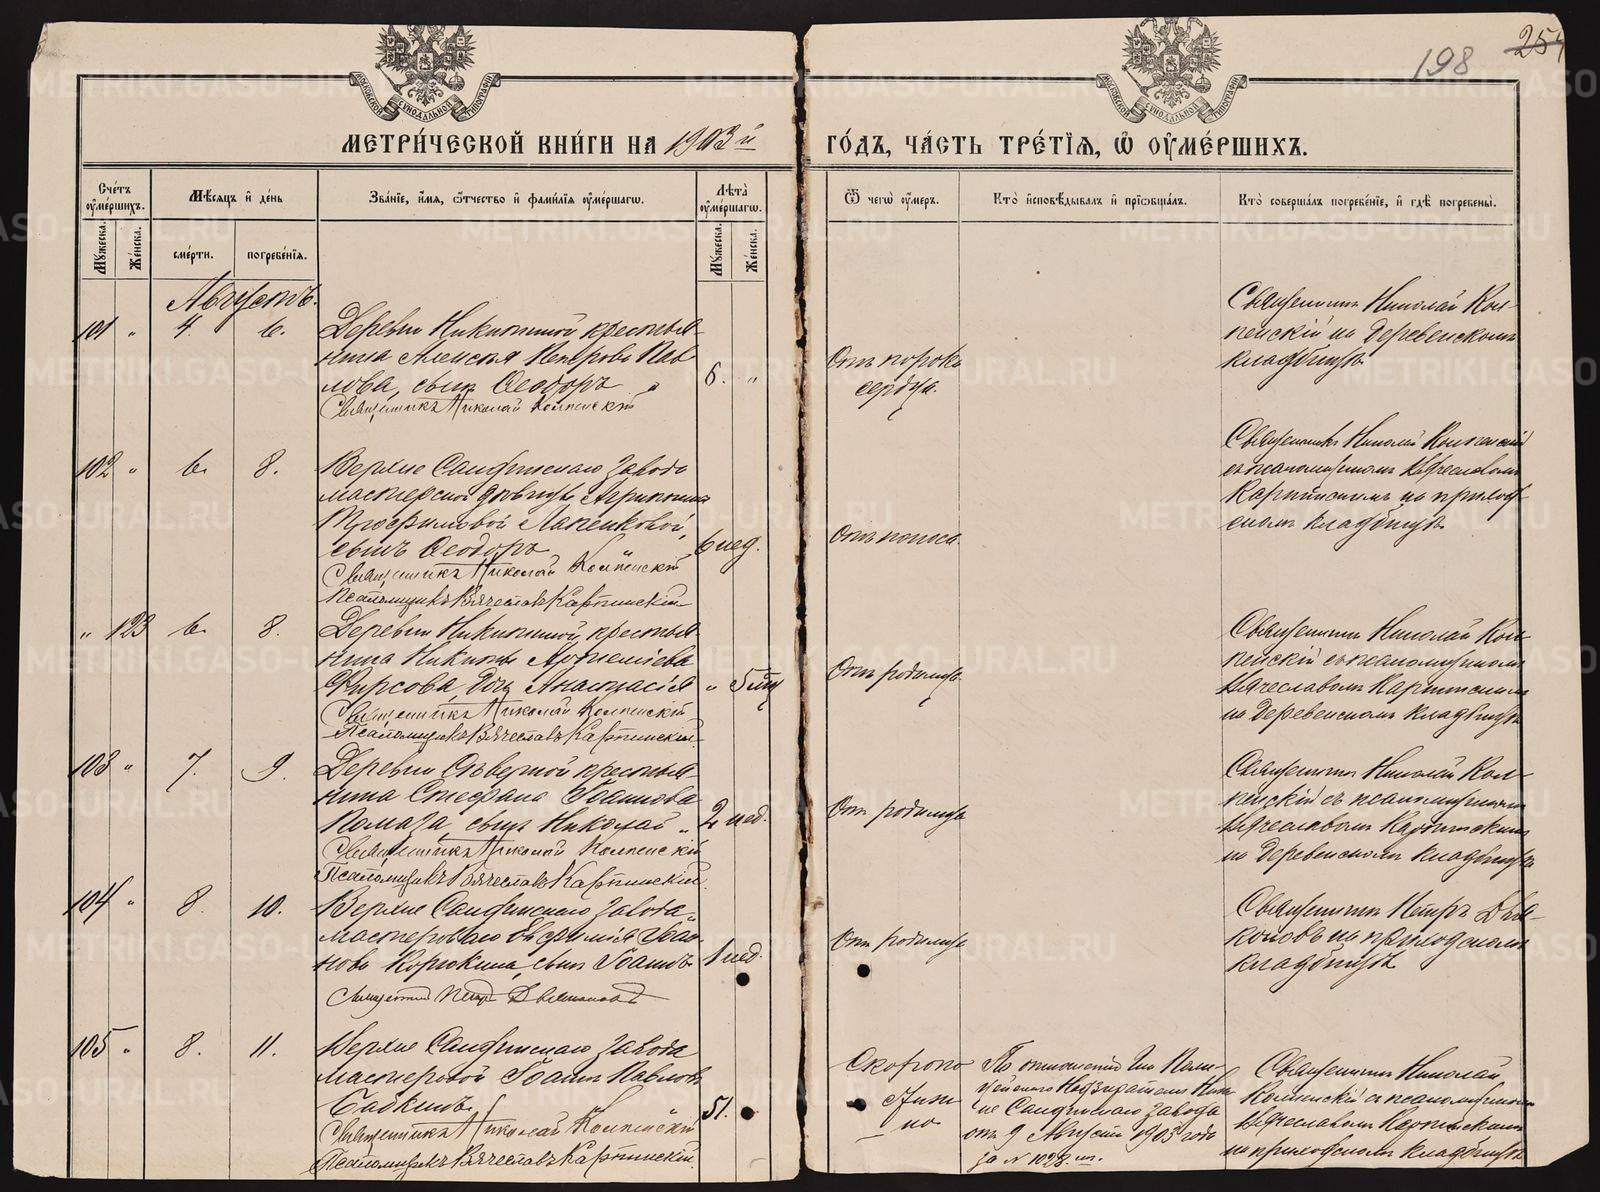 198
254
МОСКОВСКОЙ СѴНОДАЛЬНОЙ ТИПОГРАФІИ
МОСКОВСКОЙ СѴНОДАЛЬНОЙ ТИПОГРАФІИ
МЕТРИ́ЧЕСКОЙ КНИ́ГИ НА 1903й ГО́ДЪ, ЧА́СТЬ ТРЕ́ТІѦ, Ѡ ОУ҆МЕ́РШИХЪ.
Сче́тъ оу҆ме́ршихъ.
Мꙋ́жеска.
Же́нска.
Мѣ́сяцъ и҆ де́нь
сме́рти.
погребе́нія.
Зва́ніе, и҆́мя, ѻ҆́тчество и҆ фами́лія оу҆ме́ршагѡ.
Лѣ́та оу҆ме́ршагѡ.
Мꙋ́жеска.
Же́нска.
Ѿ чегѡ̀ оу҆́меръ.
Кто̀ и҆сповѣ́дывалъ и҆ прїѡбща́лъ.
Кто̀ соверша́лъ погребе́ніе, и҆ гдѣ̀ погребены̀.
Августъ.
101 " 4. 6.
Деревни Никитиной крестья-
нина Алексѣя Петрова Пав
лова, сынъ Ѳеодоръ
Священникъ Николай Колпенскій
6. "
Отъ порока
сердца.
Священникъ Николай Кол-
пенскій на Деревенскомъ
кладбищѣ
102 " 6. 8.
Верхне Салдинскаго завода
мастерской дѣвицы Агрипины
Трофимовой Лапенковой,
сынъ Ѳеодоръ
Священникъ Николай Колпенскій
Псаломщикъ Вячеславъ Карпинскій
6 нед.
Отъ поноса.
Священникъ Николай Колпенскій
съ псаломщикомъ Вячеславомъ
Карпинскимъ на приход-
скомъ кладбищѣ
" 123 6. 8.
Деревни Никитиной, крестья
нина Никиты
Фирсова, дочь Анастасія
Священникъ Николай Колпенскій
Псаломщикъ Вячеславъ Карпинскій
" 5 мц
Отъ родимца
Священникъ Николай Кол-
пенскій съ псаломщикомъ
Вячеславомъ Карпинскимъ
на Деревенскомъ кладбищѣ
103 " 7. 9.
Деревни Сѣверной крестья-
нина Стефана Іоаннова
Комаза, сынъ Николай
Священникъ Николай Колпенскій
Псаломщикъ Вячеславъ Карпинскій
2 нед.
Отъ родимца
Священникъ Николай Кол-
пенскій съ псаломщикомъ
Вячеславомъ Карпинскимъ
на Деревенскомъ кладбищѣ
104 " 8. 10.
Верхне Салдинскаго завода
мастероваго Евфимія Іоан-
нова Корюкина, сынъ Іоаннъ
Священникъ Петръ
1 нед.
Отъ родимца
Священникъ Петръ Дья-
коновъ на приходскомъ
кладбищѣ
105 " 8. 11.
Верхне Салдинскаго завода
мастеровой Іоаннъ Павловъ
Бабкинъ
Священникъ Николай Колпенскій
Псаломщикъ Вячеславъ Карпинскій
51.
Скоропо
стиж
но
По отношенію Гна Поли-
цейскаго Надзирателя Ниж
не Салдинскаго завода
отъ 9 Августа 1903 года
за N 1028.
Священникъ Николай
Колпенскій съ псаломщикомъ
Вячеславомъ Карпинскимъ
на приходскомъ кладбищѣ
METRIKI.GASO-URAL.RU